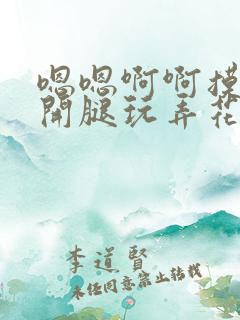 嗯嗯啊啊摸
開腿玩弄花
李道賢
未任同意禁止转载